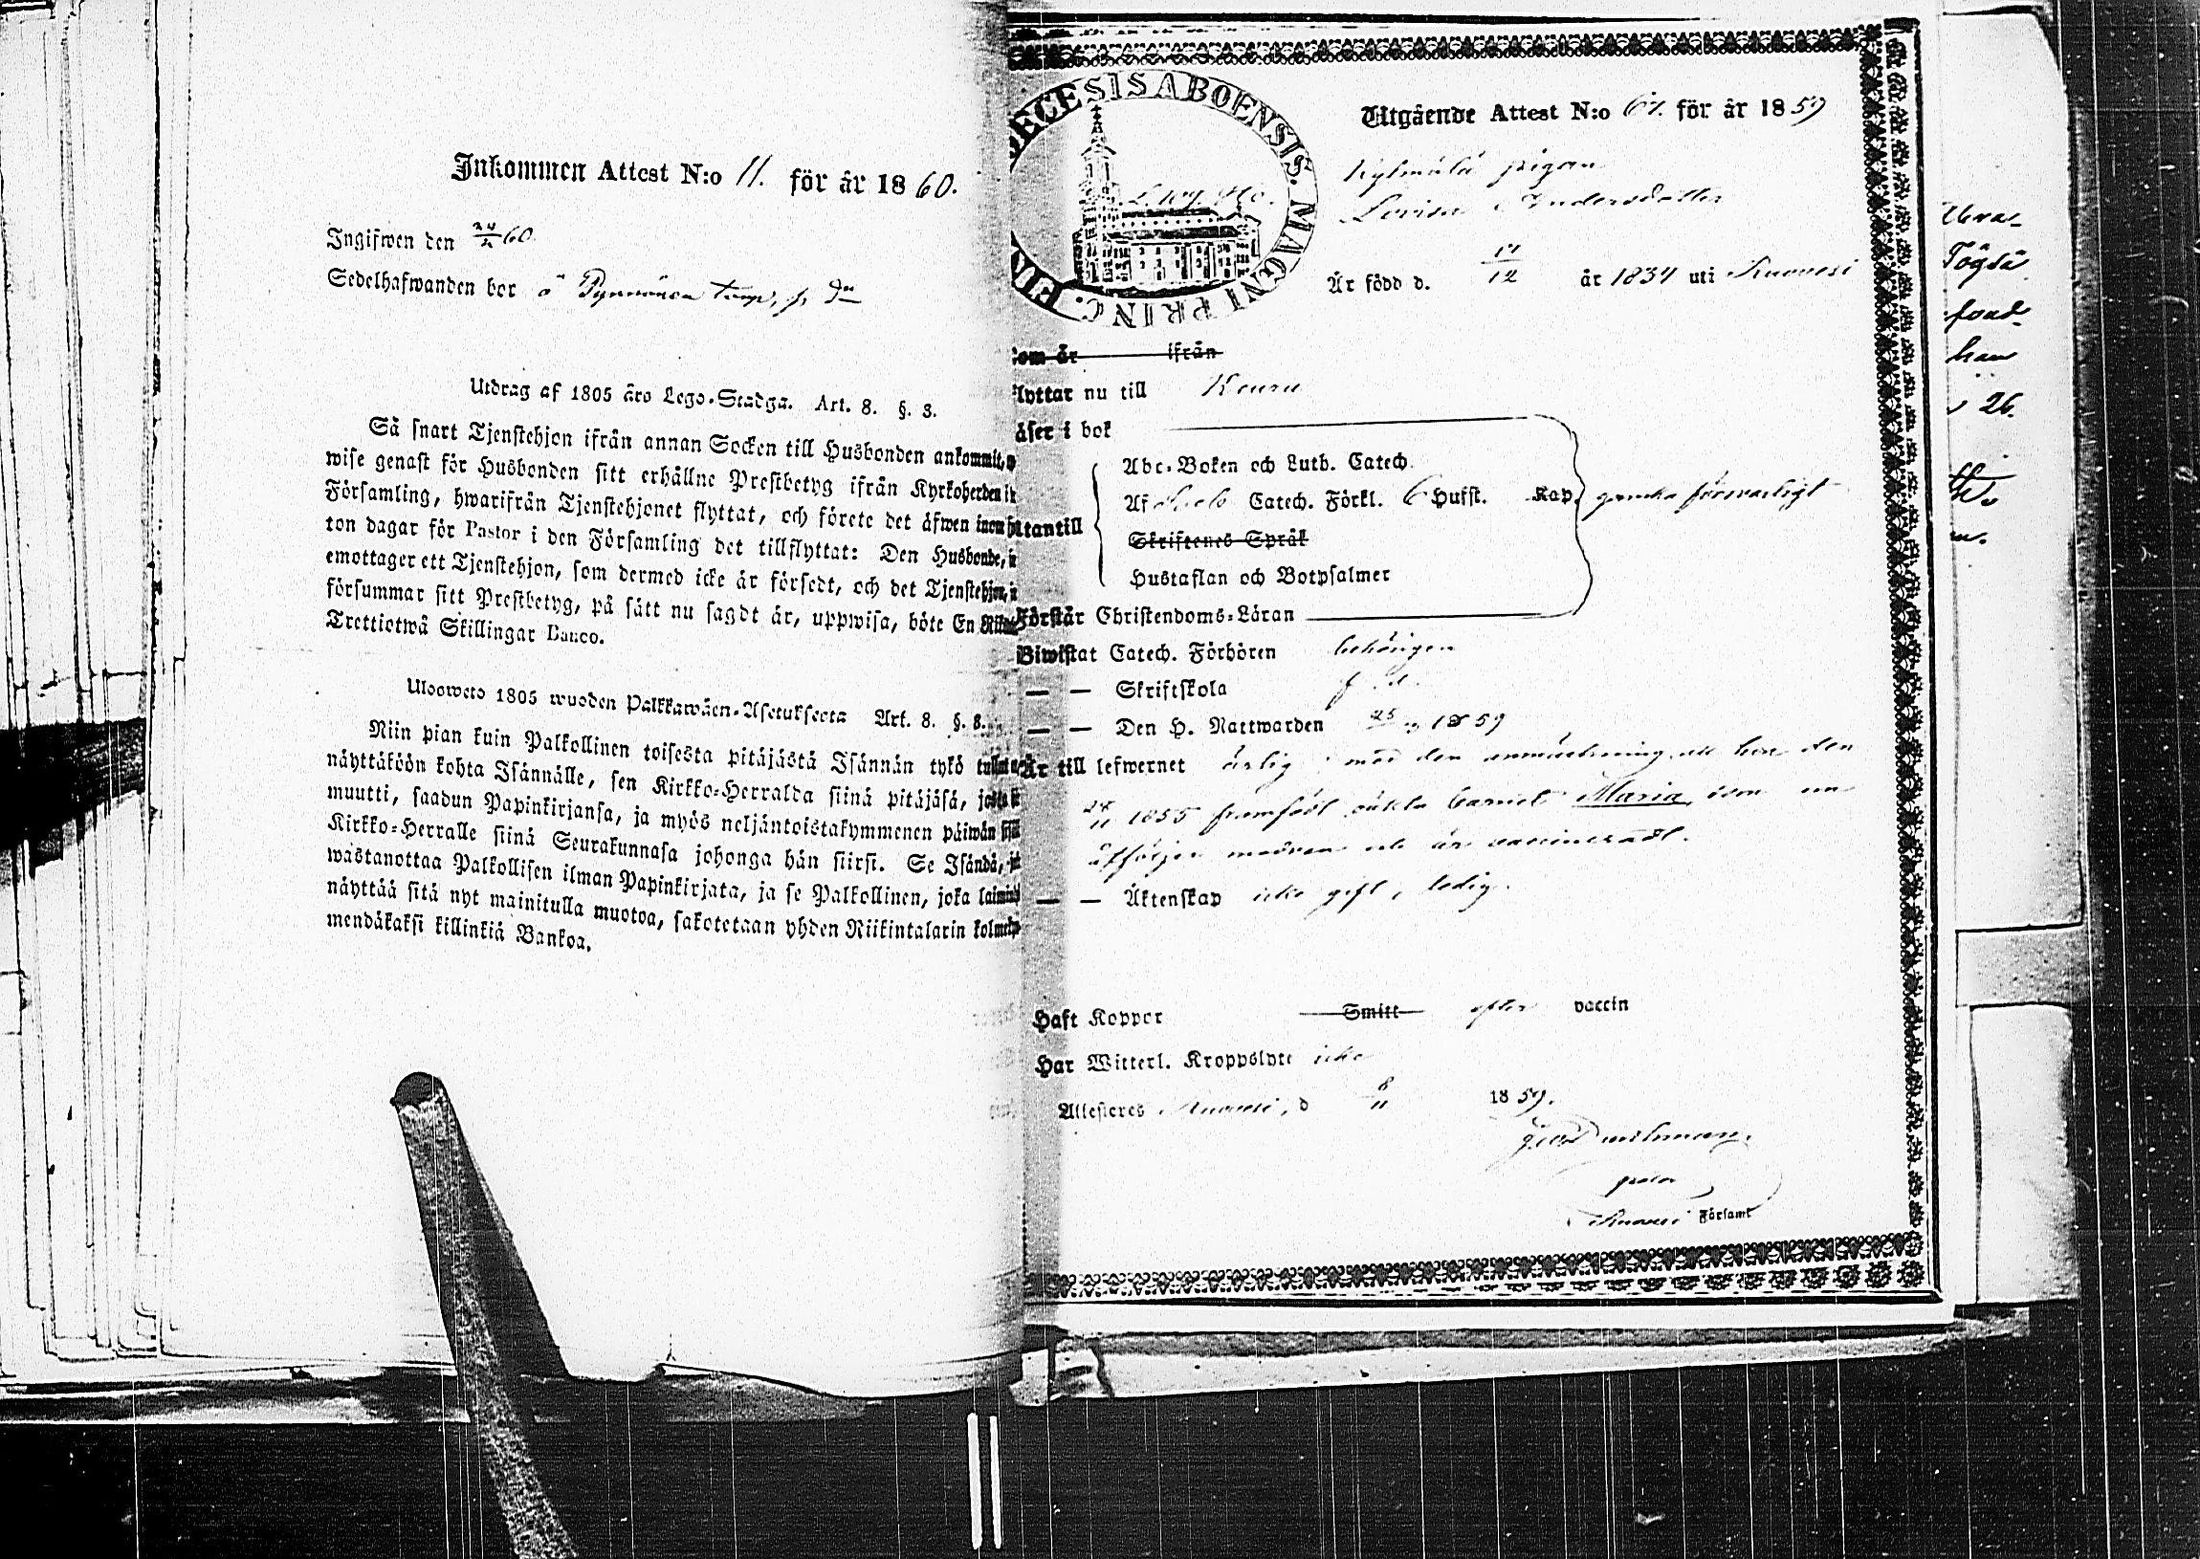 Inkommen Attest N:o 11. för år 1860.
Ingifwen den 24/4 60.
Sedelhafwanden bor å Pynnönen torp,
Utdrag af 1805 års Lego-Stadga. Art. 8. §. 3.
Så snart Tjenstehjon ifrån annan Socken till Husbonden ankommit,
wise genast för Husbonden sitt erhållne Prestbetyg ifrån Kyrkoherden i
Församling, hwarifrån Tjenstehjonet flyttat, och förete det äfwen inom
ton dagar för Pastor i den Församling det tillflyttat: Den Husbonde,
emottager ett Tjenstehjon, som dermed icke är försedt, och det Tjenstehjon,
försummar sitt Prestbetyg, på sätt nu sagdt är, uppwisa, böte En
Trettiotwå Skillingar Banco.
Ulosweto 1805 wuoden Palkkawäen-Asetuksesta Art. 8. §. 3.
Niin pian kuin Palkollinen toisesta pitäjästä Isännän tykö
näyttäköön kohta Isännälle, sen Kirkko-Herralda siinä pitäjäsä,
muutti, saadun Papinkirjansa, ja myös neljäntoistakymmenen päiwän
Kirkko-Herralle siinä Seurakunnasa johonga hän siirsi. Se Isändä,
wastanottaa Palkollisen ilman Papinkirjata, ja se Palkollinen, joka
näyttää sitä nyt mainitulla muotoa, sakotetaan yhden Riikintalarin
mendäkaksi killinkiä Bankoa.
ECESIS ABOENSIS. MAGNI PRINC. FIN
Utgående Attest N:o 67. för år 1859
Kylmälä pigan
Lovisa Andersdotter
Är född d. 17/12 år 1834 uti Kuorevesi
om är ifrån
flyttar nu till Keuru
äser i bok
Abc-Boken och Luth. Catech.
Af Catech. Förkl. 6 Hufst. Kap. ganska förswarligt
utantill
Skriftenes Språk
Hustaflan och Botpsalmer
Förstår Christendoms-Läran
Biwistat Catech. Förhören behörigen
— — Skriftskola
— — Den H. Nattwarden 1859
Är till lefwernet ärlig med den anmärkning att hon den
1855 framfödt oäkta barnet Maria, som nu
åtföljer modren och är vaccineradt.
— — Äktenskap icke gift, ledig.
Haft Koppor Smitt efter vaccin
Har Witterl. Kroppslyte icke
Attesteras Kuorevesi, d 8/11 1859.
Församl
Abra-
han
26.